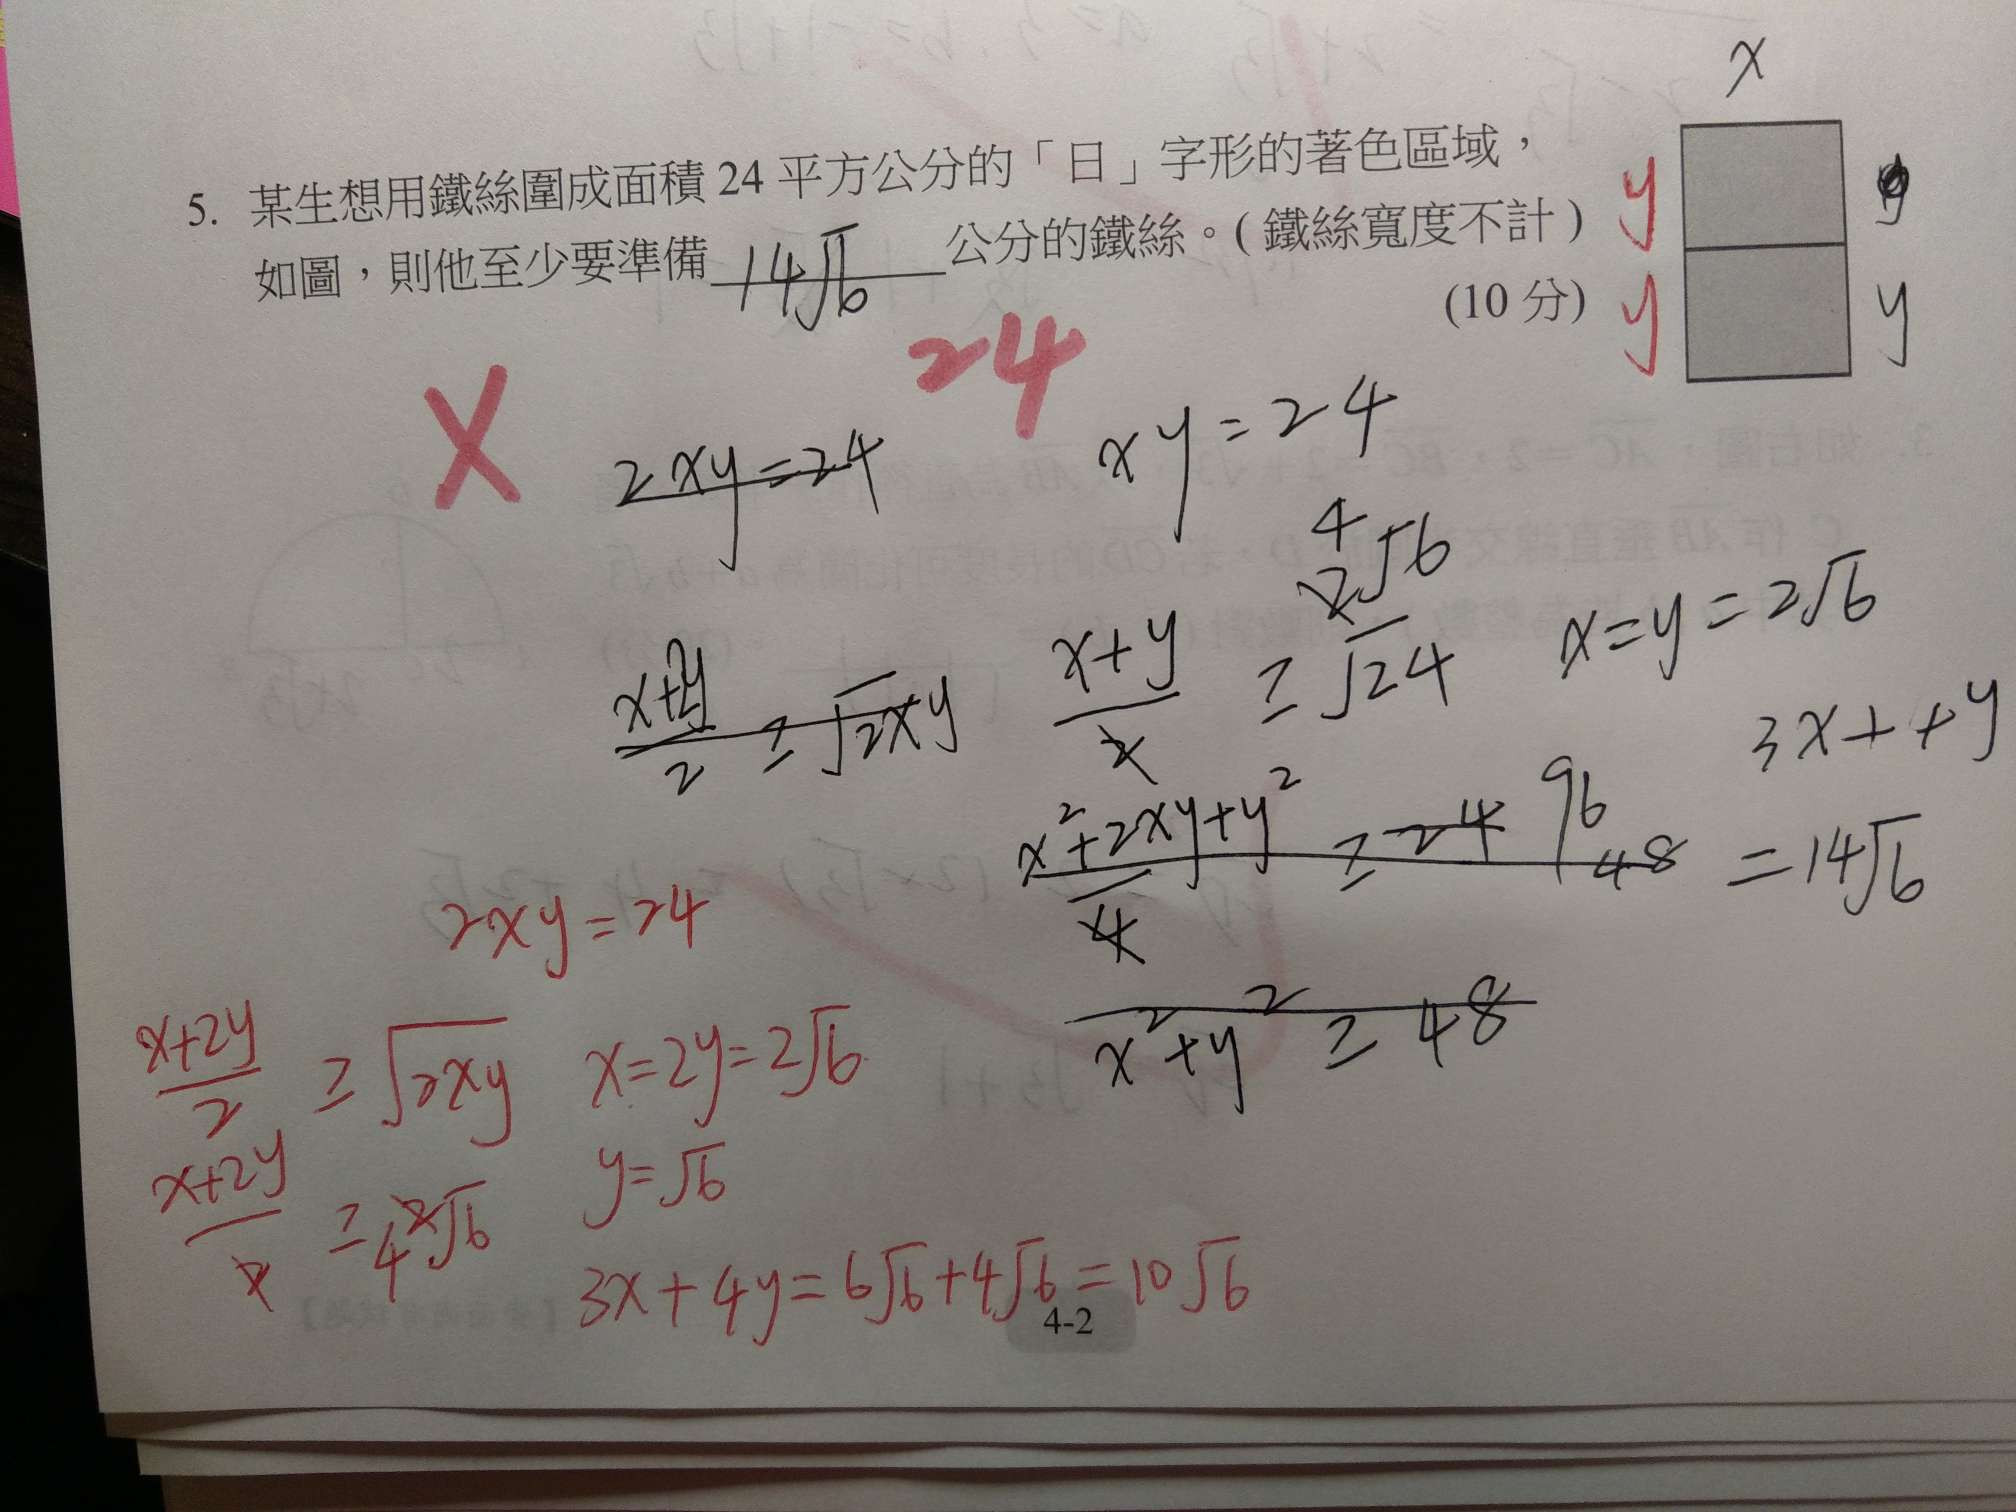 x
5. 某生想用鐵絲圍成面積 24 平方公分的「日」字形的著色區域，
如圖，則他至少要準備 14√6 公分的鐵絲。( 鐵絲寬度不計 )
(10 分)
y y
y y
X 24
2xy=24
xy=24
x+2y/2 ≥ √2xy
4
2√6
x+y/2 ≥ √24
x=y=2√6
3x+ +y
=14√6
x²+2xy+y²/4 ≥ 24 96 48
x²+y² ≥ 48
2xy=24
x+2y/2 ≥ √2xy x=2y=2√6
x+2y/2 ≥ 4 2√6 y=√6
3x+4y=6√6+4√6=10√6
4-2